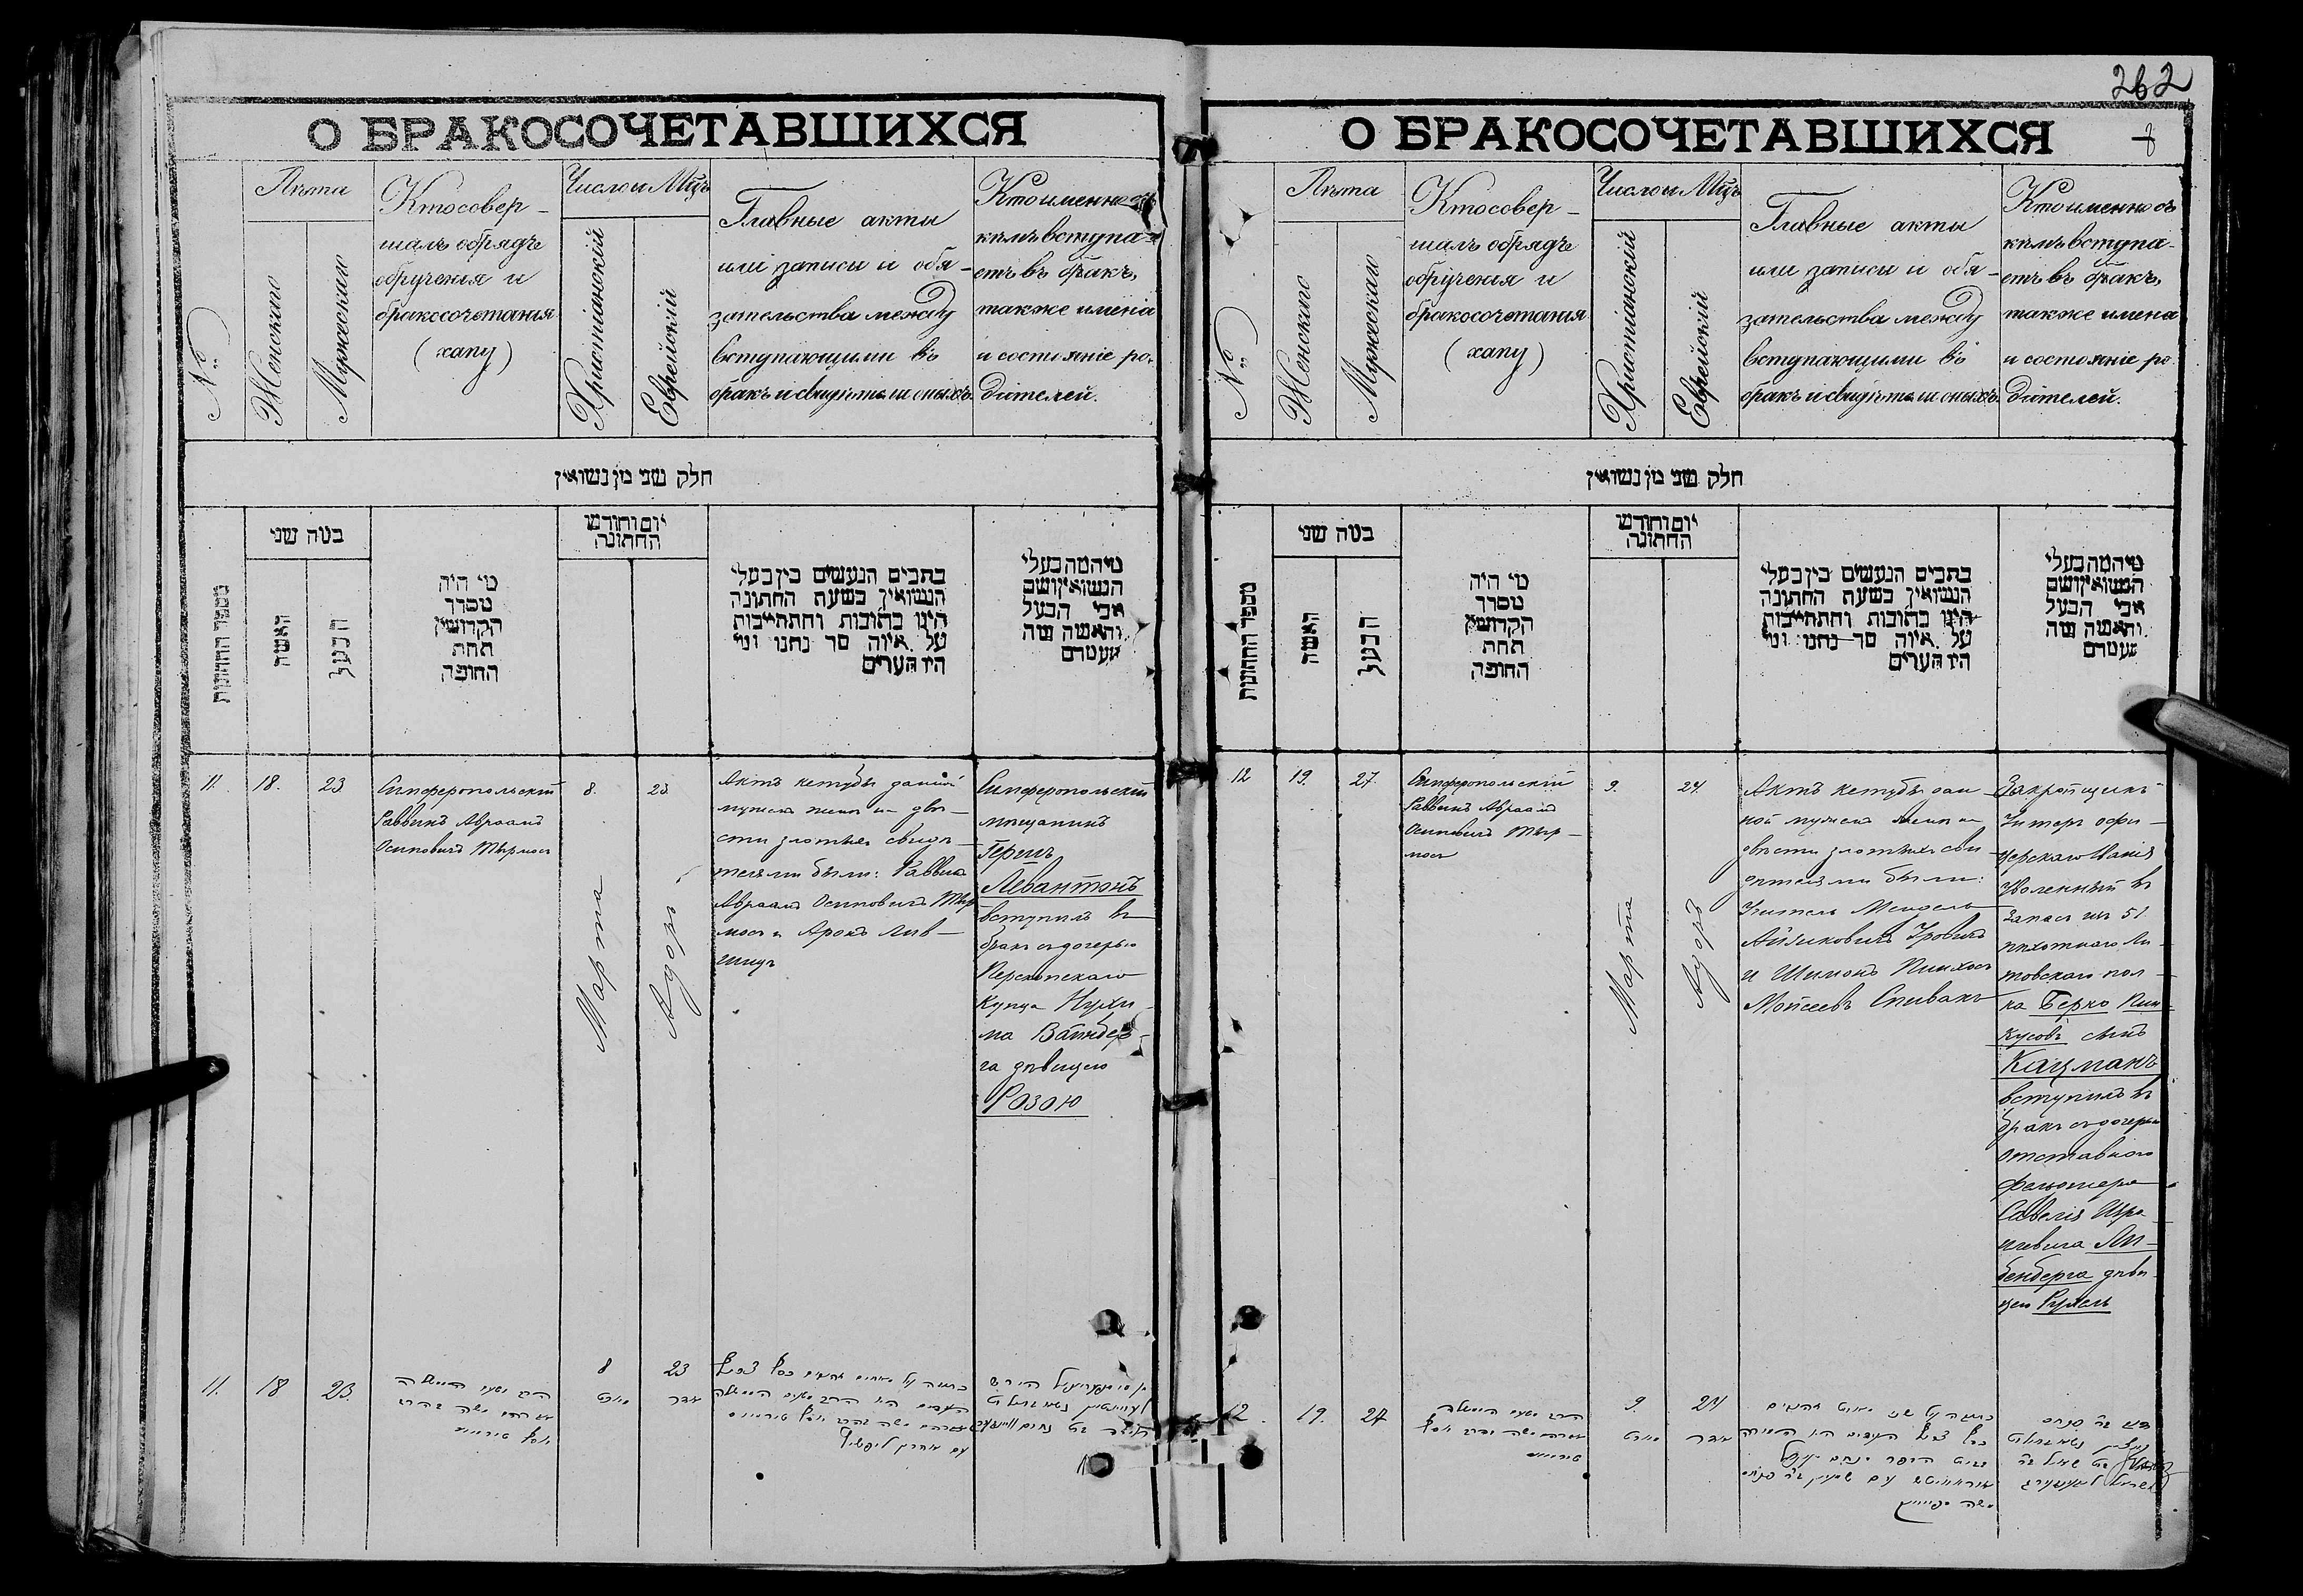 О БРАКОСОЧЕТАВШИХСЯ
№
Лѣта
Женскаго
Мужескаго
Кто совер-
шалъ обрядъ
обрученія и
бракосочетанія
(хапу)
Число и Мцъ
Христіанскій
Еврейскій
Главные акты
или записи и обя-
зательства между
вступающими въ
бракъ и свидѣтели оныхъ.
Кто именно съ
кѣмъ вступа-
етъ въ бракъ,
также имена
и состояніе ро-
дителей.
חלק שני מן נשואין
מספר החתונות
כמה שני
האשה
הבעל
מי היה
מסדר
הקדושין
תחת
החופה
יום וחודש
החתונה
כתבים הנעשים בין בעלי
הנשואין בשעת החתונה
היינו כתובות והתחייבות
על איזה סך נתנו ומי
היו העדים
מי המה בעלי
הנשואין ושם
אבי הבעל
והאשה ומה
מעמדם
11.
18.
23
Симферопольскій
Раввинъ Авраамъ
Осиповичъ Тырмосъ
8.
Марта
23.
Адоръ
Актъ кетубы даной
мужемъ женѣ на двѣ-
сти злотыхъ свидѣ-
телями были: Раввинъ
Авраамъ Осиповичъ Тыр
мосъ и Аронъ Лив-
шицъ
Симферопольскій
мѣщанинъ
Гершъ
Левантонъ
вступилъ въ
бракъ съ дочерью
Перекопскаго
купца Нухи-
ма Вайнбер-
га дѣвицею
Розою
11.
18
23.
8
23
מארט
אדר
262
О БРАКОСОЧЕТАВШИХСЯ
8
№
Лѣта
Женскаго
Мужескаго
Кто совер-
шалъ обрядъ
обрученія и
бракосочетанія
(хапу)
Число и Мцъ
Христіанскій
Еврейскій
Главные акты
или записи и обя-
зательства между
вступающими въ
бракъ и свидѣтели оныхъ.
Кто именно съ
кѣмъ вступа-
етъ въ бракъ,
также имена
и состояніе ро-
дителей.
חלק שני מן נשואין
מספר החתונות
כמה שני
האשה
הבעל
מי היה
מסדר
הקדושין
תחת
החופה
יום וחודש
החתונה
כתבים הנעשים בין בעלי
הנשואין בשעת החתונה
היינו כתובות והתחייבות
על איזה סך נתנו ומי
היו העדים
מי המה בעלי
הנשואין ושם
אבי הבעל
והאשה ומה
מעמדם
12
19.
27.
Симферопольскій
Раввинъ Авраамъ
Осиповичъ Тыр-
мосъ
9.
Марта
24.
Адоръ
Актъ кетубы дан-
ной мужемъ женѣ на
двѣсти злотыхъ сви
дѣтелями были:
Учитель Мендель
Айзиковичъ Уровичъ
и Шимонъ Пинхосъ
Мойсеевъ Спивакъ
Закройщикъ
Унтеръ офи-
церскаго званія
уволенный въ
запасъ изъ 51.
пѣхотнаго Ли-
товскаго пол-
ка Берко Пин-
кусовъ сынъ
Кацманъ
вступилъ въ
бракъ съ дочерью
отставного
фельдшера
Савелія Изра-
илевича Ли-
бенберга дѣви
цею Рухель
12.
19.
27
9.
24
מארט
אדר